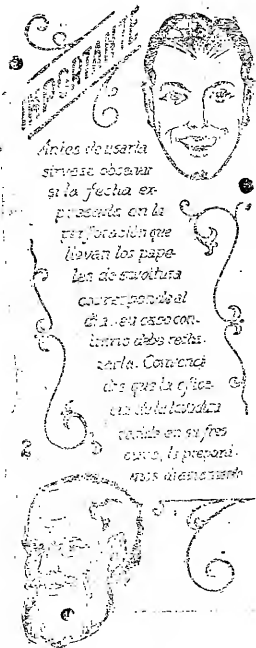 IMPORTANTE
Antes de usarla
sirvase observar
si la fecha ex-
presada en la
perforación que
llevan los pape-
les de envoltura
corresponde al
día, en caso con-
trario debe recha-
zarla. Convenci
dos que la efica-
cia de la levadura
reside en su fres
cura, la prepara-
mos diariamente